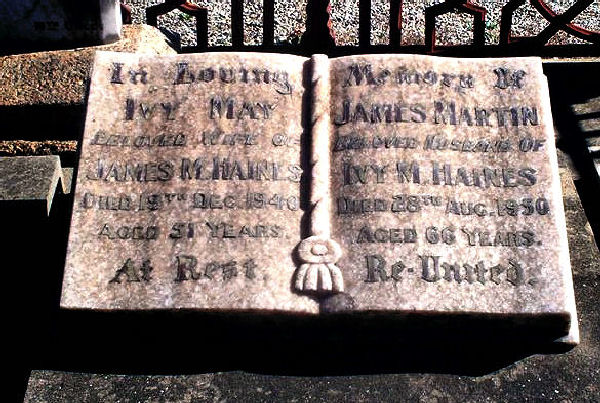 In Loving
IVY MAY
BELOVED WIFE OF
JAMES M. HAINES
DIED 19TH DEC. 1940
AGED 51 YEARS.
At Rest.
Memory Of
JAMES MARTIN
BELOVED HUSBAND OF
IVY M. HAINES
DIED 28TH AUG. 1950
AGED 66 YEARS.
Re-United.